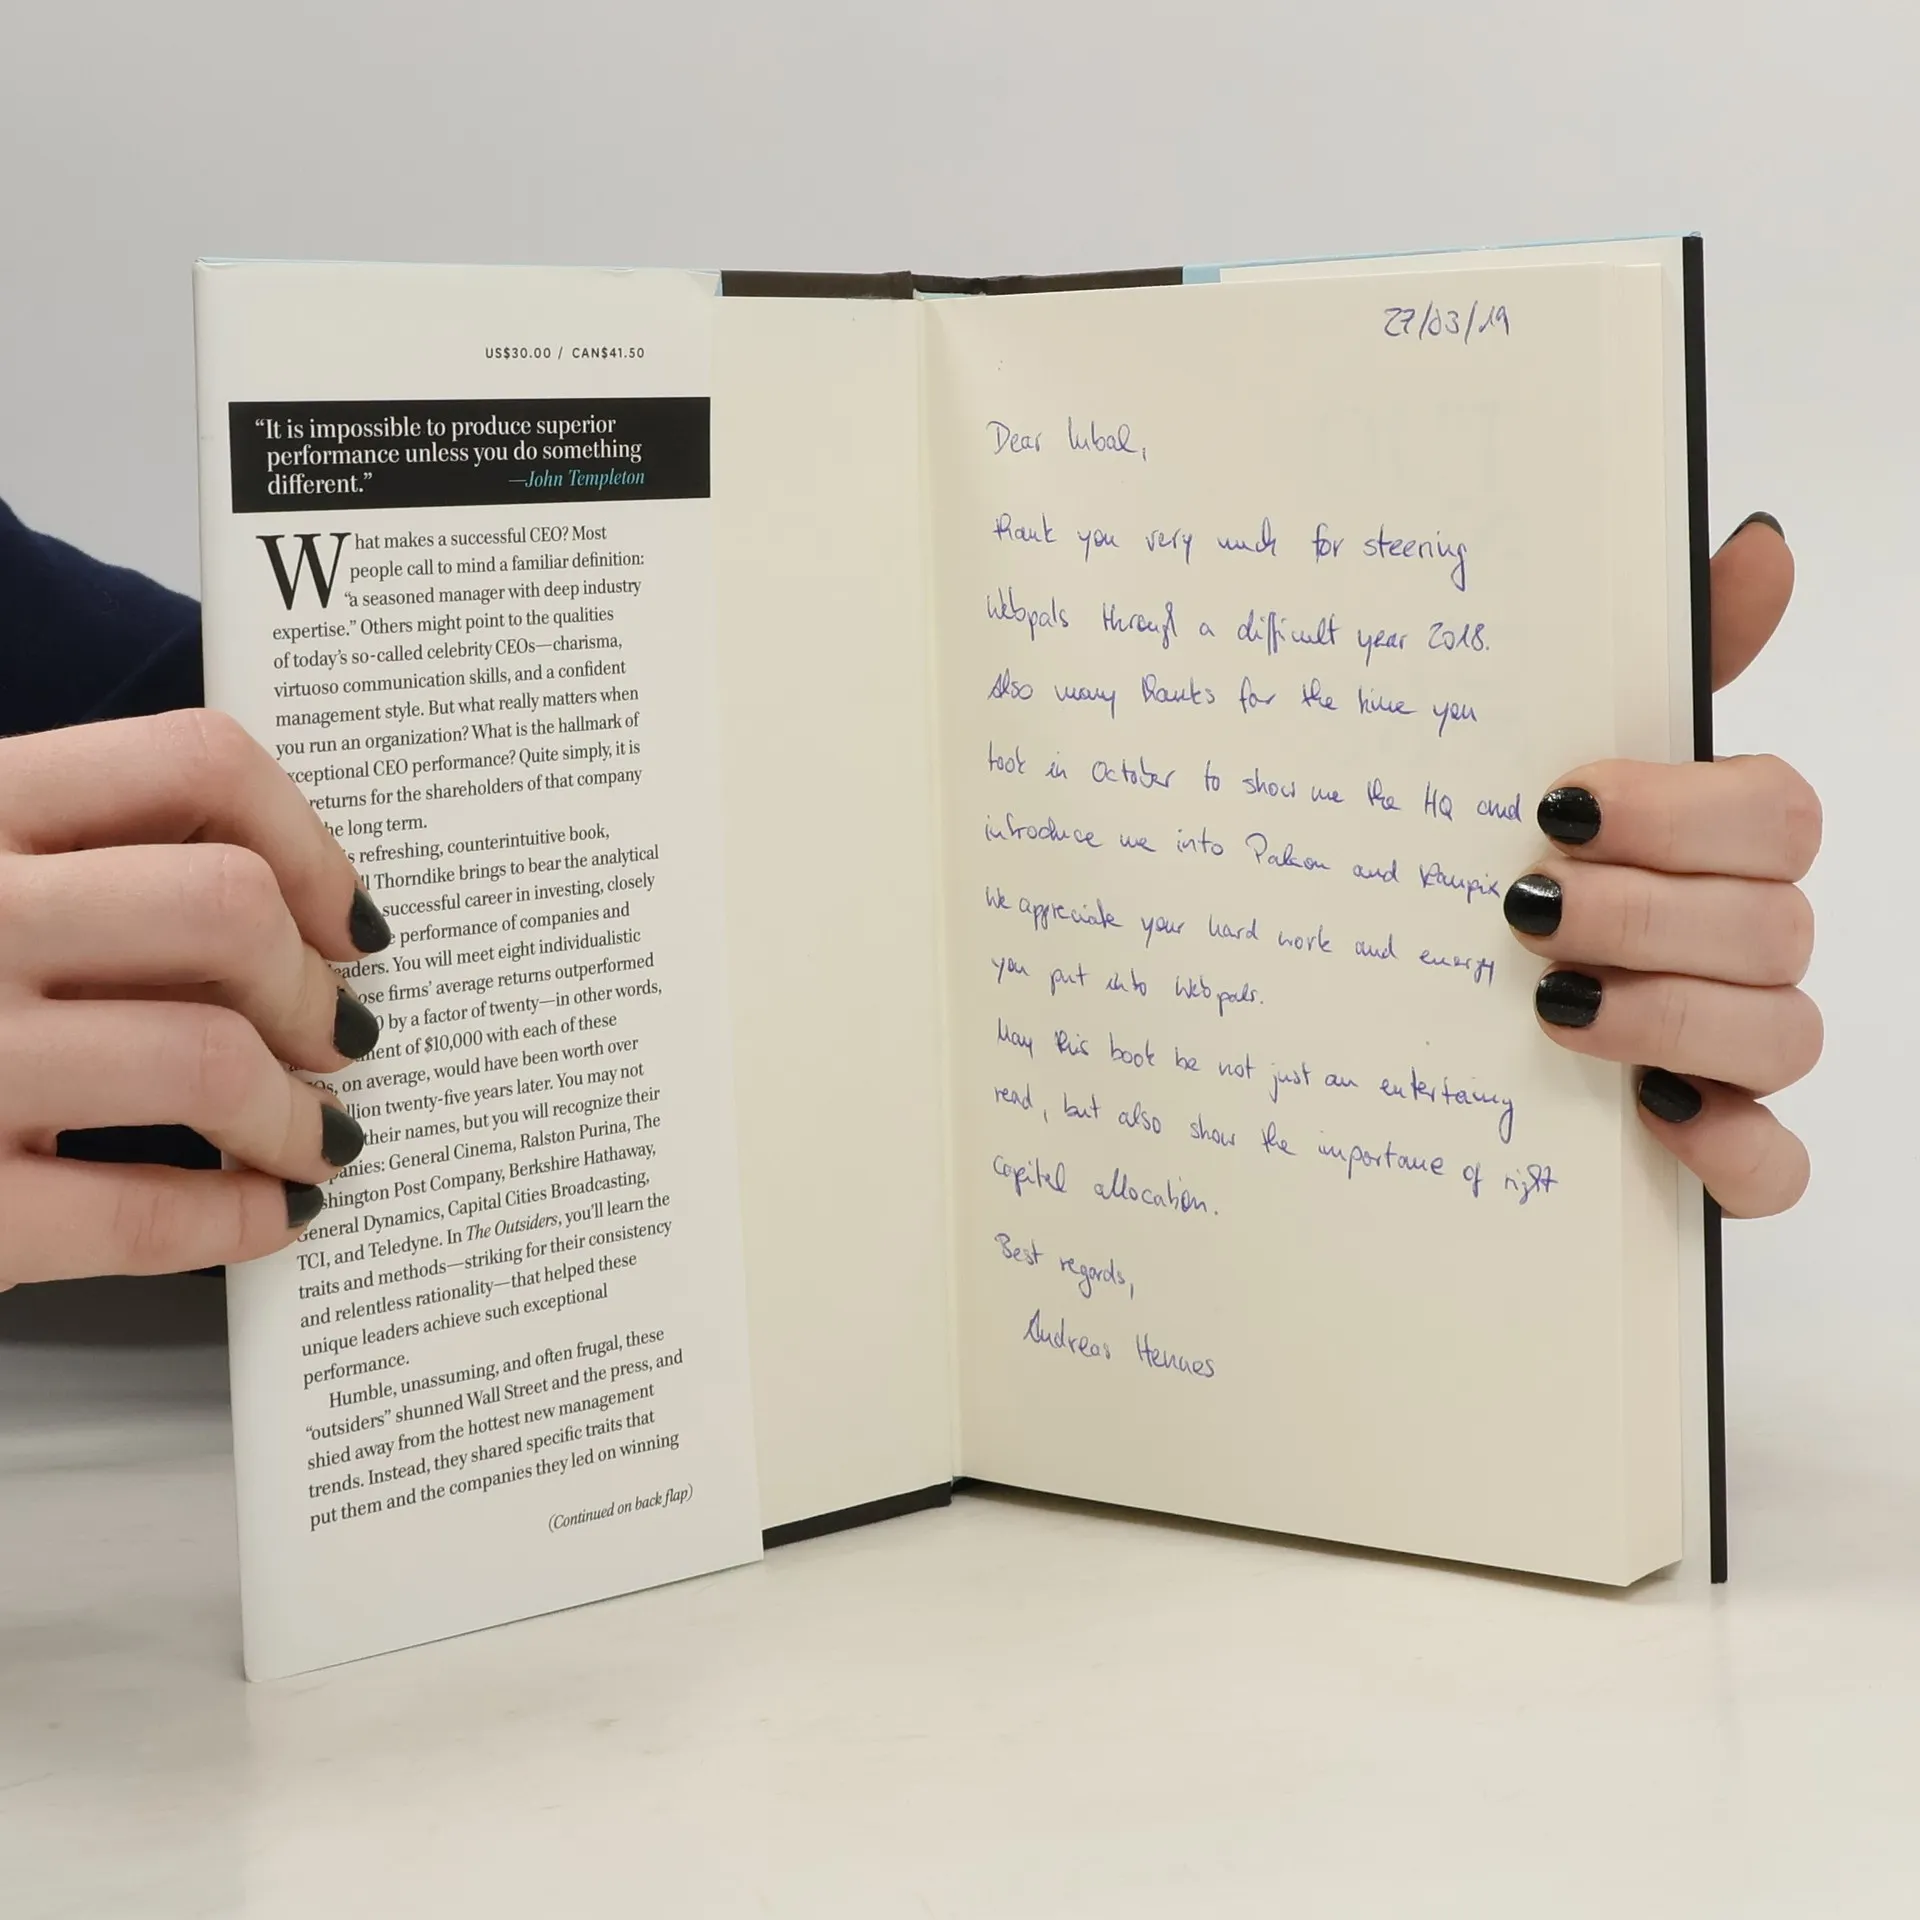 US$30.00 / CAN$41.50
“It is impossible to produce superior
performance unless you do something
different.”
—John Templeton
What makes a successful CEO? Most
people call to mind a familiar definition:
“a seasoned manager with deep industry
expertise.” Others might point to the qualities
of today’s so-called celebrity CEOs—charisma,
virtuoso communication skills, and a confident
management style. But what really matters when
you run an organization? What is the hallmark of
xceptional CEO performance? Quite simply, it is
returns for the shareholders of that company
he long term.
s refreshing, counterintuitive book,
ll Thorndike brings to bear the analytical
successful career in investing, closely
e performance of companies and
eaders. You will meet eight individualistic
ose firms’ average returns outperformed
0 by a factor of twenty—in other words,
ment of $10,000 with each of these
Os, on average, would have been worth over
llion twenty-five years later. You may not
their names, but you will recognize their
panies: General Cinema, Ralston Purina, The
shington Post Company, Berkshire Hathaway,
General Dynamics, Capital Cities Broadcasting,
TCI, and Teledyne. In The Outsiders, you’ll learn the
traits and methods—striking for their consistency
and relentless rationality—that helped these
unique leaders achieve such exceptional
performance.
Humble, unassuming, and often frugal, these
“outsiders” shunned Wall Street and the press, and
shied away from the hottest new management
trends. Instead, they shared specific traits that
put them and the companies they led on winning
(Continued on back flap)
27/03/19
Dear Inbal,
thank you very much for steering
Webpals through a difficult year 2018.
Also many thanks for the time you
took in October to show me the HQ and
introduce me into and
We appreciate your hard work and energy
you put into Webpals.
May this book be not just an entertaing
read, but also show the importance of right
capital allocation.
Best regards,
Andreas Hennes